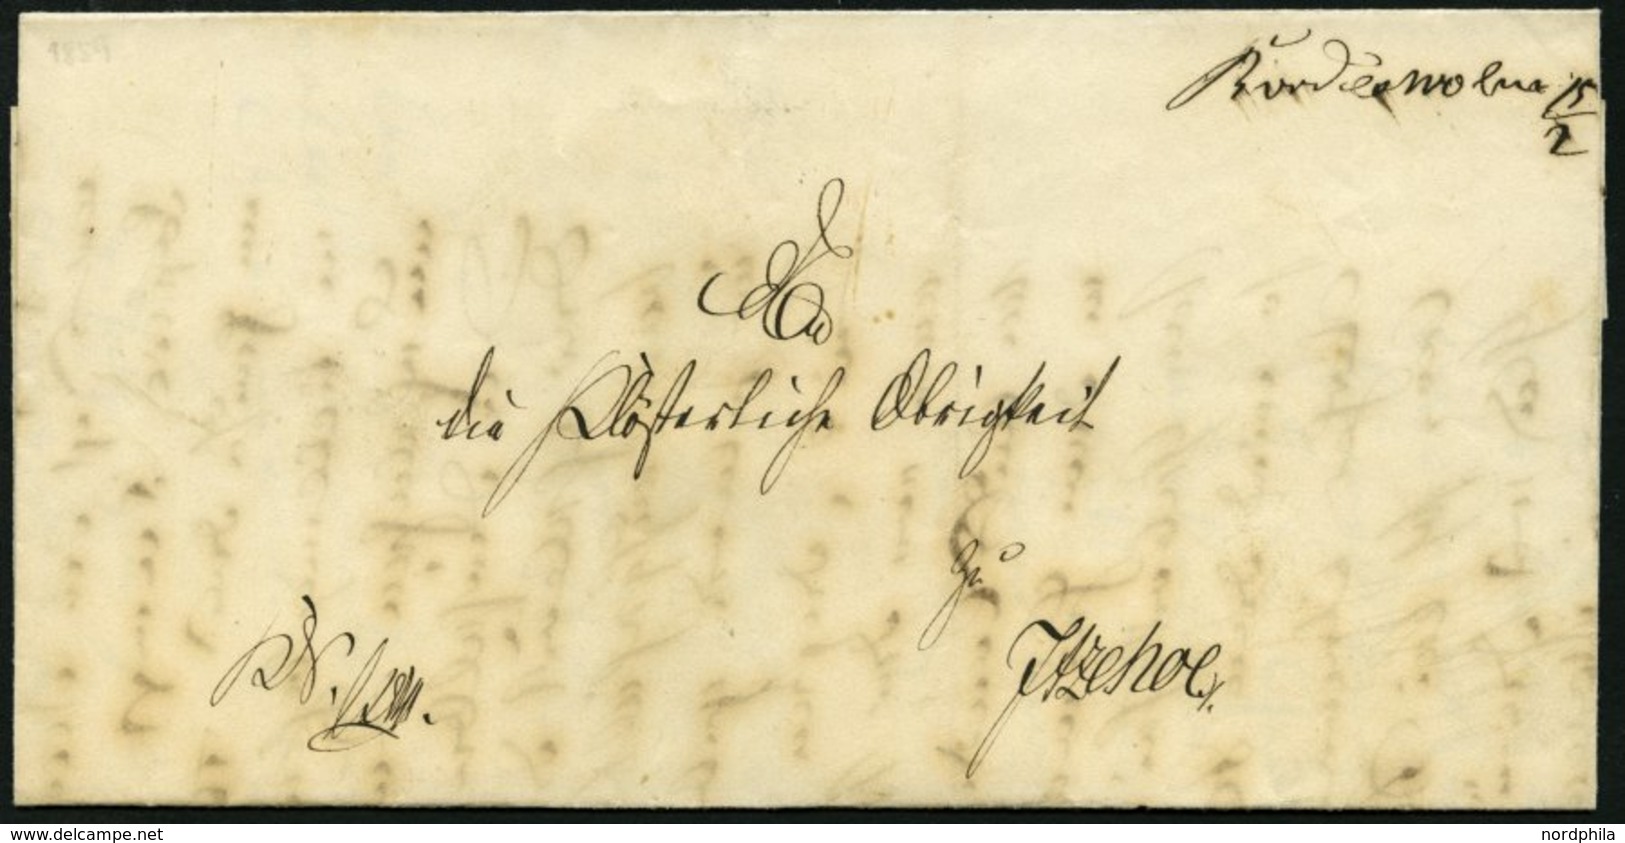 Bordesholm 15/2
An
die Klösterliche Obrigkeit
zu
Itzehoe
K. S.
www.delcampe.net
nordphila